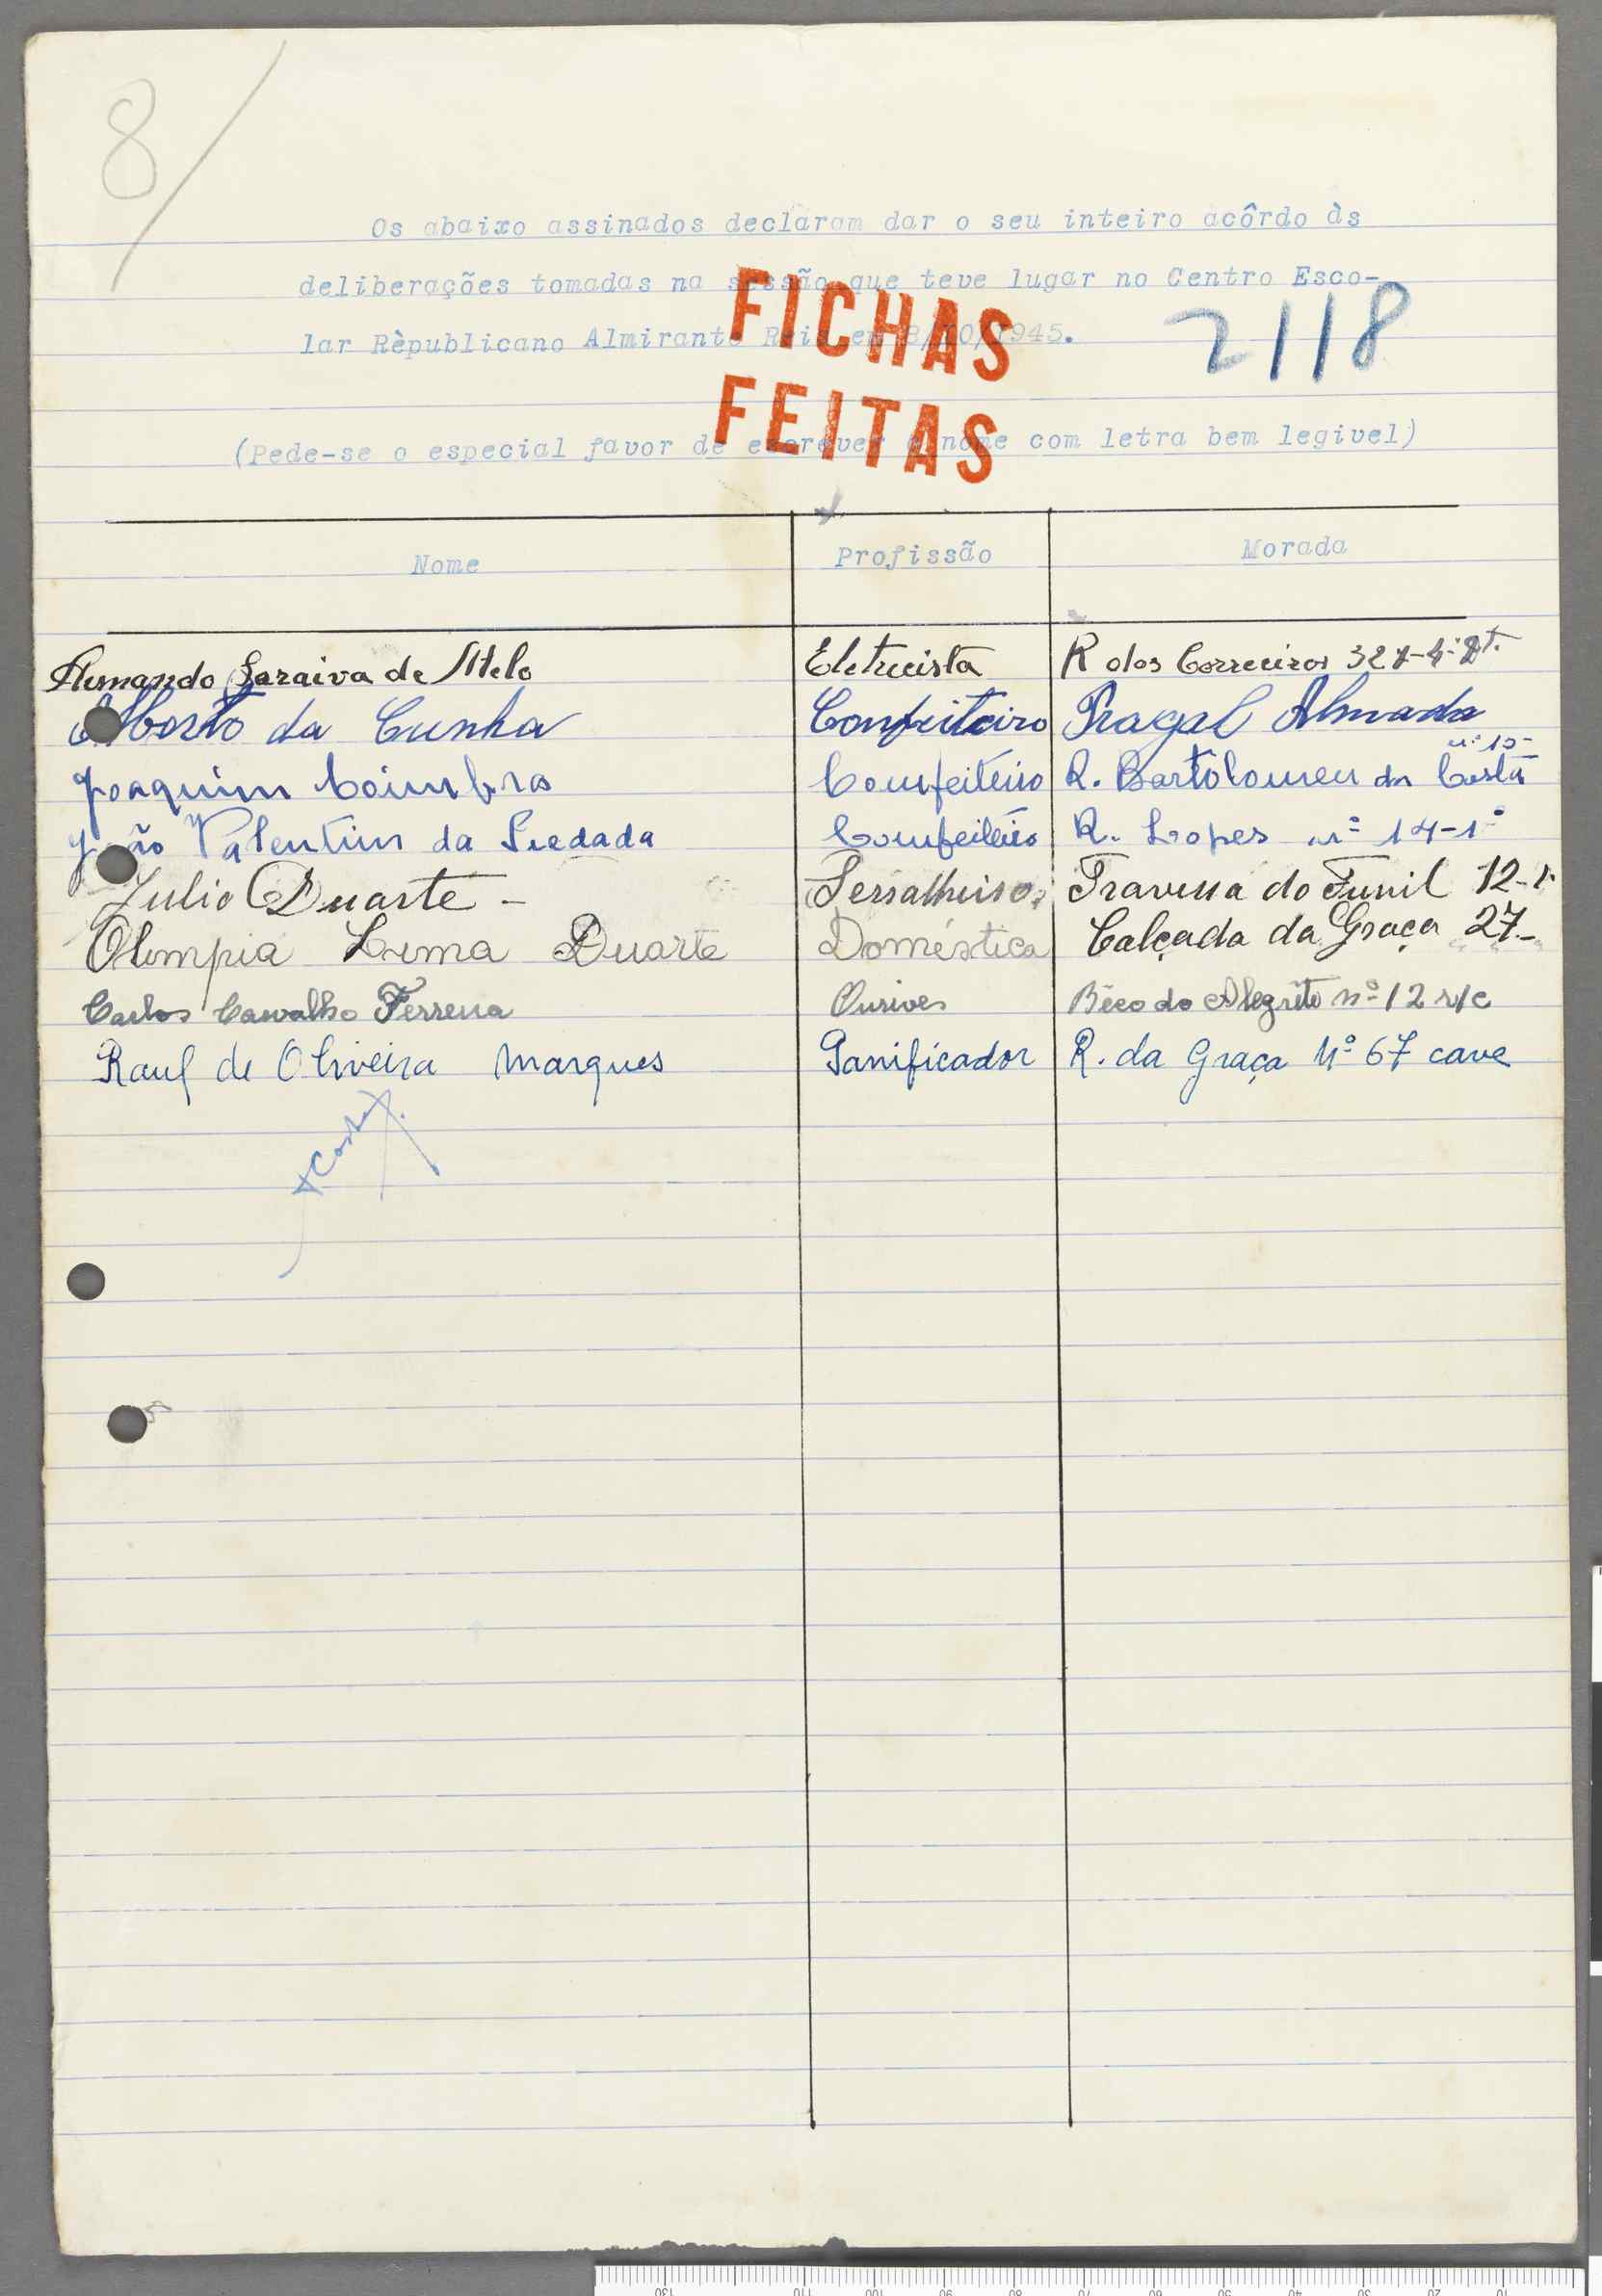 8/
Os abaixo assinados declaram dar o seu inteiro acôrdo às
deliberações tomadas na sessão que teve lugar no Centro Esco-
lar Rèpublicano Almirante Reis em 8/10/1945.
FICHAS
FEITAS
2118
(Pede-se o especial favor de escrever o nome com letra bem legivel)
Nome Profissão Morada
Armando Saraiva de Melo Eletricista R dos Correeiros 327-4º Dt.
Alberto da Cunha Confeiteiro Pragal Almada
Joaquim Coimbra Confeiteiro R. Bartolomeu da Costa nº 15-
João Valentim da Confeiteiro R. Lopes nº 14-1º
Julio Duarte - Serralheiro. Travessa do Funil 12-1º
Olimpia Lima Duarte Doméstica Calçada da Graça 27-
Carlos Carvalho Ferreira Ourives Bêco do Alegrete nº 12 r/c
Raul de Oliveira Marques Panificador R. da Graça Nº 67 cave